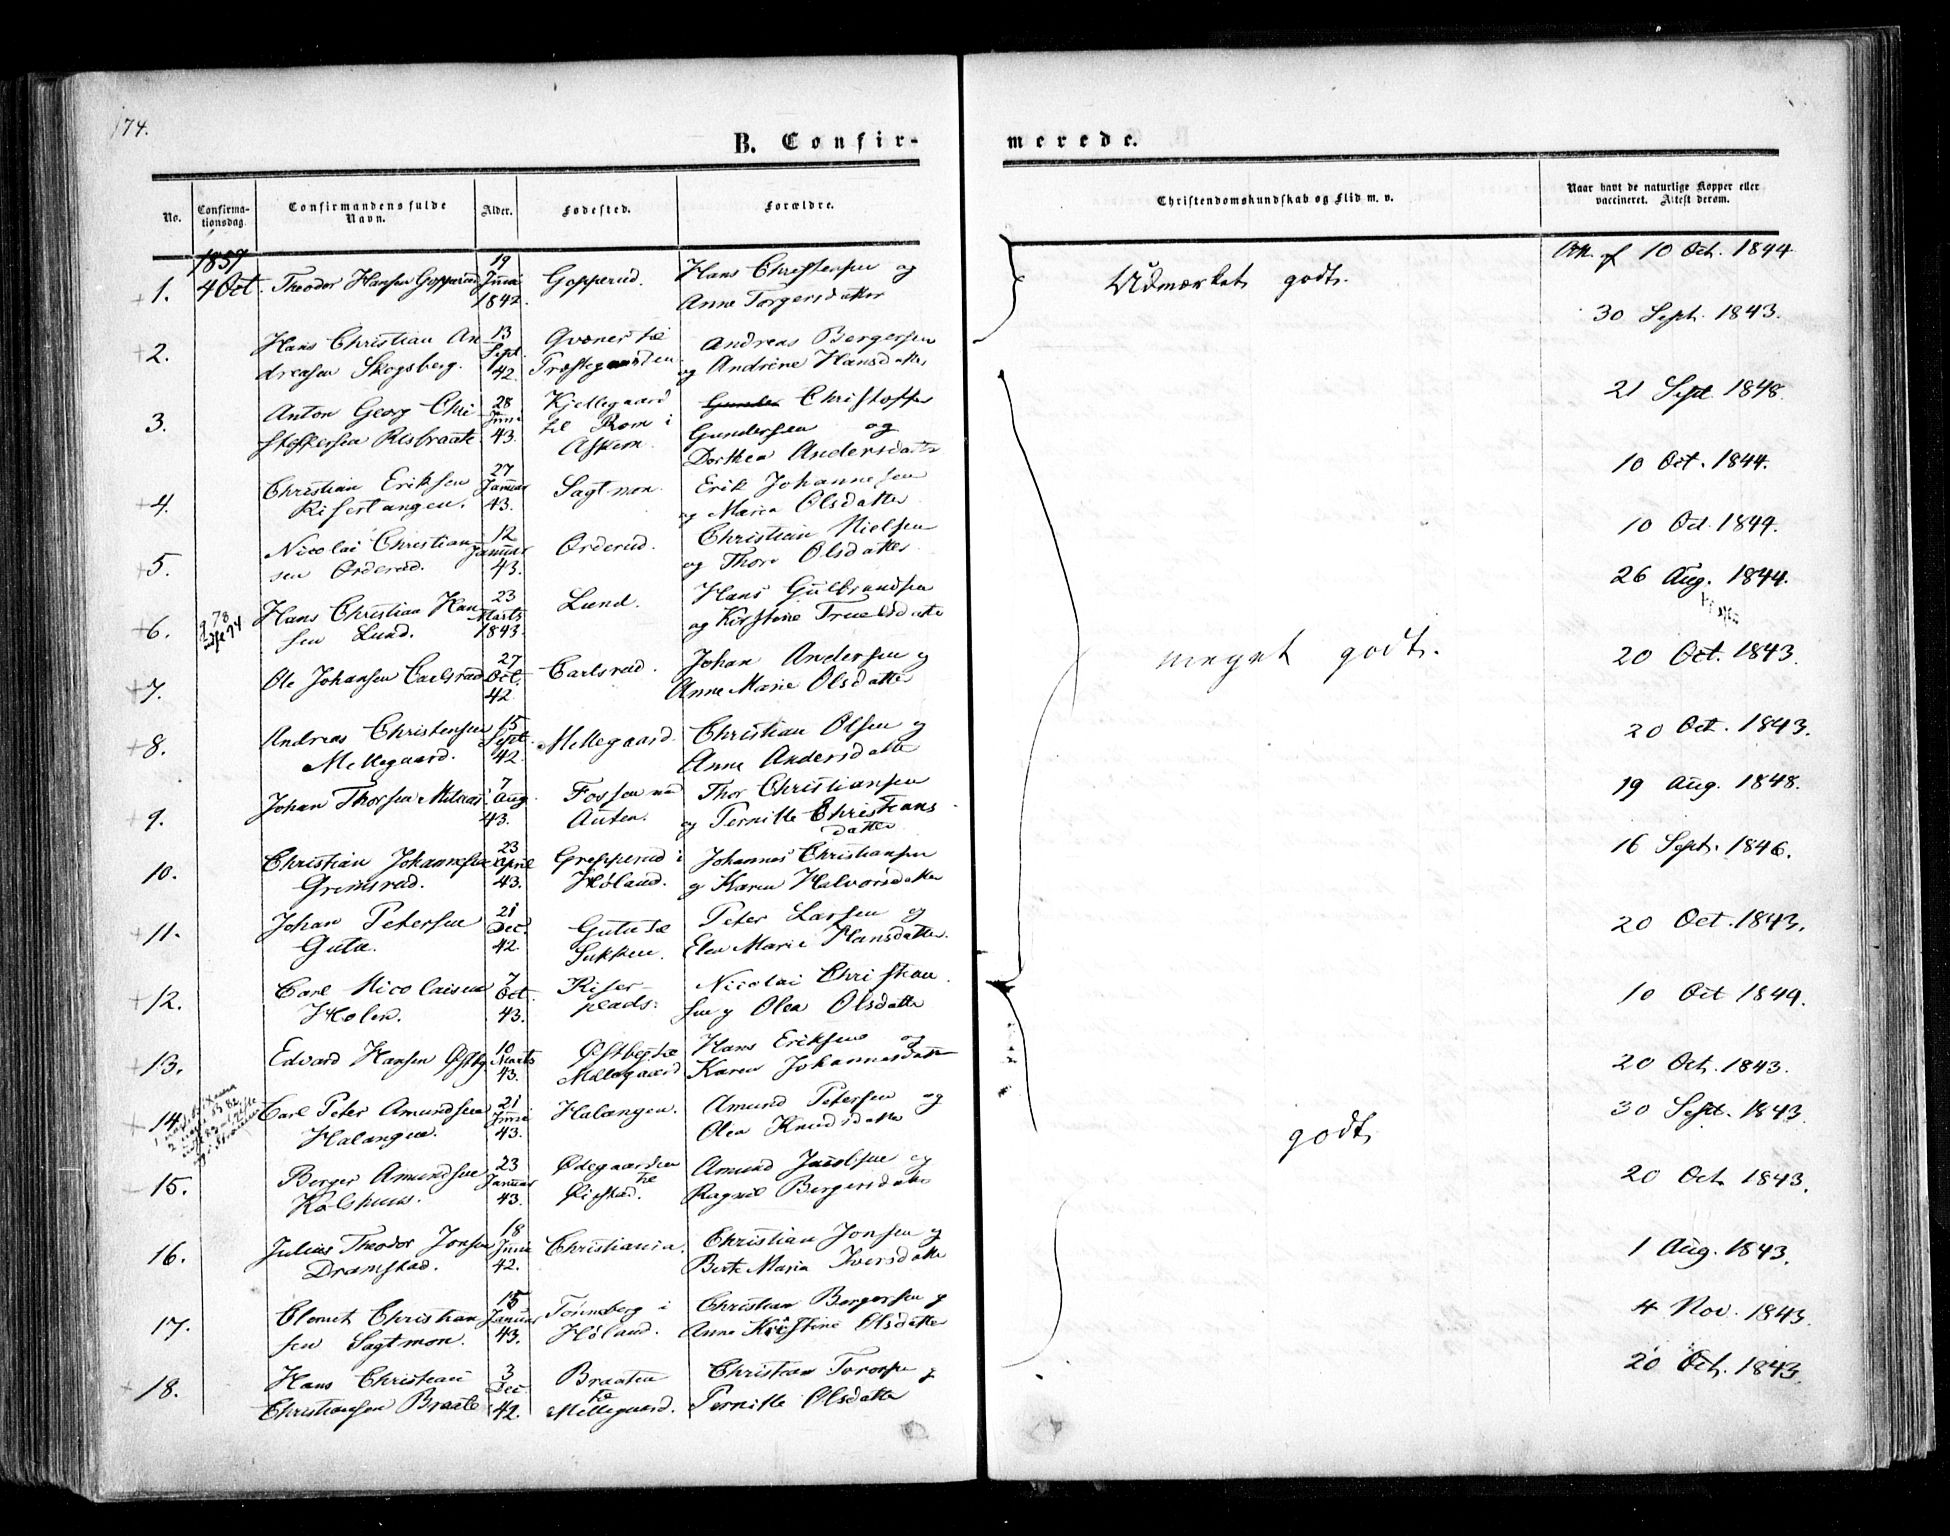 174.
B. Confir-
merede.
No.
Confirma-
tionsdag.
Confirmandens fulde
Navn.
Alder.
Fødested.
Forældre.
Christendomskundskab og Flid m. v.
Naar havt de naturlige Kopper eller
vaccineret. Attest derom.
1857
1. 4 Oct. Theodor Hansen Gopperud 19 Juni 1842 Gopperud. Hans Christensen og
Anne Torgersdatter
Udmærket godt.
Att. af 10 Oct. 1844
2. Hans Christian An 13 Sept. 42. Andreas Bergersen
dreasen Skogsberg. Præstegaarden og Andrine Hansdatter
30 Sept. 1843.
3. Anton Georg Chri 28 Juni 43. Kjellegaard Christoffer
stoffersen Risbraate til Rom i Gundersen og
Askim. Dorthea Andersdatter
21 Sept 1848.
4. Christian Eriksen 27 Januar 43. Sagtmon. Erik Johannesen
Risertangen. og Maria Olsdatter
10 Oct. 1844.
5. Nicolai Christian 12 Januar 43. Orderud. Christian Nielsen
sen Orderud. og Thore Olsdatter
10 Oct. 1844.
6. Hans Christian Han 23 Marts 1843. Lund. Hans Gulbrandsen
sen Lund. og Kirstine Truelsdatter
26 Aug. 1844.
7. Ole Johansen Carlsrud 27 Oct. 42 Carlsrud. Johan Andersen og
Anne Marie Olsdatter
meget godt.
20 Oct. 1843.
8. Andreas Christensen 15 Sept. 42. Mellegaard. Christian Olsen og
Mellegaard. Anne Andersdatter
20 Oct. 1843.
9. Johan Thorsen 7 Aug. 43. Fossen Thor Christiansen
og Pernille Christians
datter
19 Aug. 1848.
10. Christian Johannesen 23 April 43. Grepperud i Johannes Christiansen
Grimsrud. Høland. og Karen Halvorsdatter
16 Sept. 1846.
11. Johan Petersen 21 Dec. 42. Gutu Peter Larsen og
Gutu. Elen Marie Hansdatter.
20 Oct. 1843.
12. Carl Nicolaisen 7 Oct. 43. Riser- Nicolai Christian
Holen. plads. sen og Olea Olsdatter
10 Oct 1844.
13. Edvard Hansen Østby 10 Marts 43. Østby Hans Eriksen og
Mellegaard Karen Johannesdatter
20 Oct. 1843.
14. Carl Peter Amundsen 21 Juni 43. Halangen. Amund Petersen og
Halangen. Olea Knudsdatter
godt.
30 Sept. 1843
15. Berger Amundsen 23 Januar 43. Ødegaarden Amund Jacobsen og
Kolshuus. til Ragnil Bergersdatter
20 Oct. 1843.
16. Julius Theodor Jonsen 18 Juni 42. Christiania. Christian Jonsen og
Dramstad. Berte Maria Iversdatter
1 Aug. 1843.
17. Clemet Christian 15 Januar 43. Tønneberg i Christian Bergersen og
sen Sagtmon. Høland. Anne Kristine Olsdatter
4 Nov. 1843.
18. Hans Christian 3 Dec 42. Braaten Christian
Christiansen Braate til Mellegaard. Pernille Olsdatter
20 Oct. 1843.